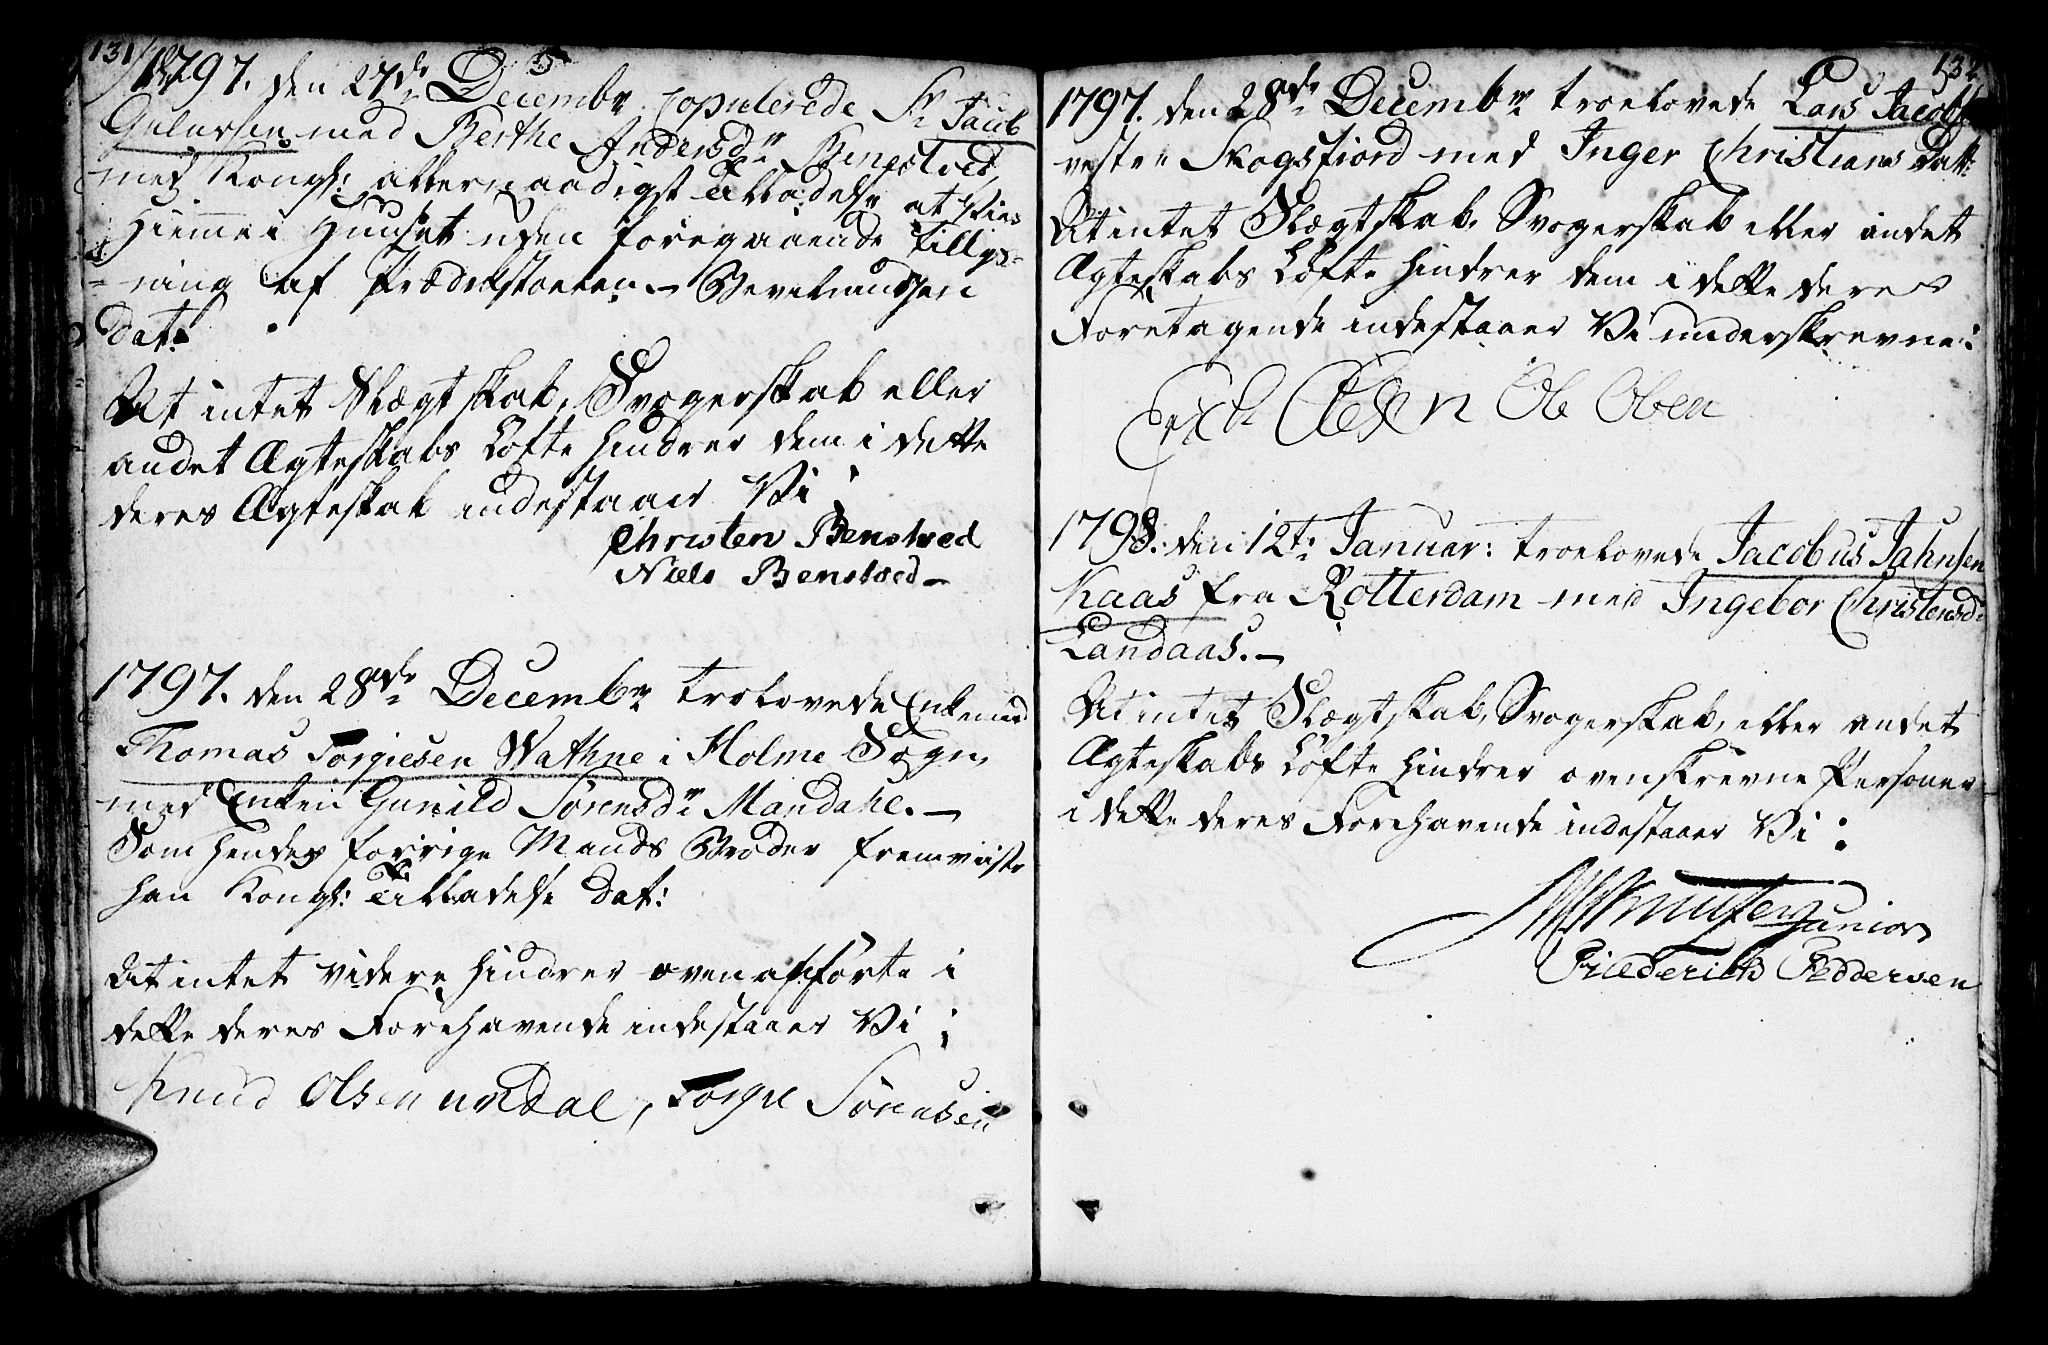 131
1797. den 27de Decembr Copulerede Sr Jacob
Gulussen med Berthe Andersdr Benestvet,
med Kongl: allernaadigst Tilladelse at Vies
hiemme i Huuset uden foregaaende Tillys-
ning af Prædikstoelen. Bevilningen
dat:
At intet Slægtskab, Svogerskab eller
andet Ægteskabs Løfte hindrer dem i dette
deres Ægteskab indestaaer Vi:
Christen Benstved
Niels Benstved
1797. den 28de Decembr trolovede Enkemd
Thomas Torgiesen Wathne i Holme Sogn,
med Enken Gunild Sørensdr Mandahl.
Som hendes forrige Mands Broder fremviiste
han Kongl: Tilladelse dat:
At intet videre hindrer ovenanførte i
dette deres Forehavende indestaaer Vi:
Knud Olsen undal, Torge Sörensen
132
1797. den 28de Decembr troelovede Lars Jacobs
vestre Skogsfiord med Inger Christians Datt:
At intet Slægtskab, Svogerskab eller andet
Ægteskabs Løfte hindrer dem i dette deres
Foretagende indestaaer Vi underskrevne:
Erich Olesen Ole Olsen
1798. den 12te Januar: troelovede Jacobus Jahnsen
Kaas fra Rotterdam med Ingebor Christensd:
Landaas.
At intet Slægtskab, Svogerskab, eller andet
Ægteskabs Løfte hindrer ovenskrevne Personer
i dette deres Forehavende indestaaer Vi:
Knutzen Junior
Friederich Peddersen